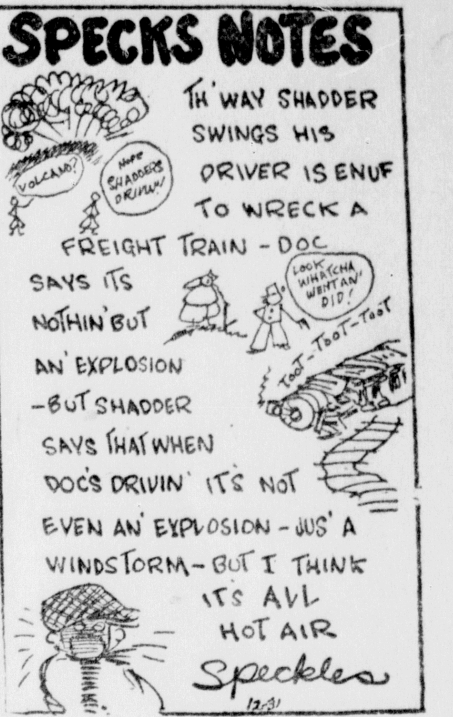 SPECKS NOTES
TH' WAY SHADDER
SWINGS HIS
DRIVER IS ENUF
TO WRECK A
VOLCANO?
NOPE
SHADDERS
DRIVIN'!
FREIGHT TRAIN - DOC
SAYS ITS
NOTHIN' BUT
AN' EXPLOSION
- BUT SHADDER
SAYS THAT WHEN
DOC'S DRIVIN' IT'S NOT
EVEN AN' EXPLOSION - JUS' A
WINDSTORM - BUT I THINK
IT'S ALL
HOT AIR
LOOK
WHATCHA
WENT AN'
DID!
TOOT-TOOT-TOOT
Speckles
12-31